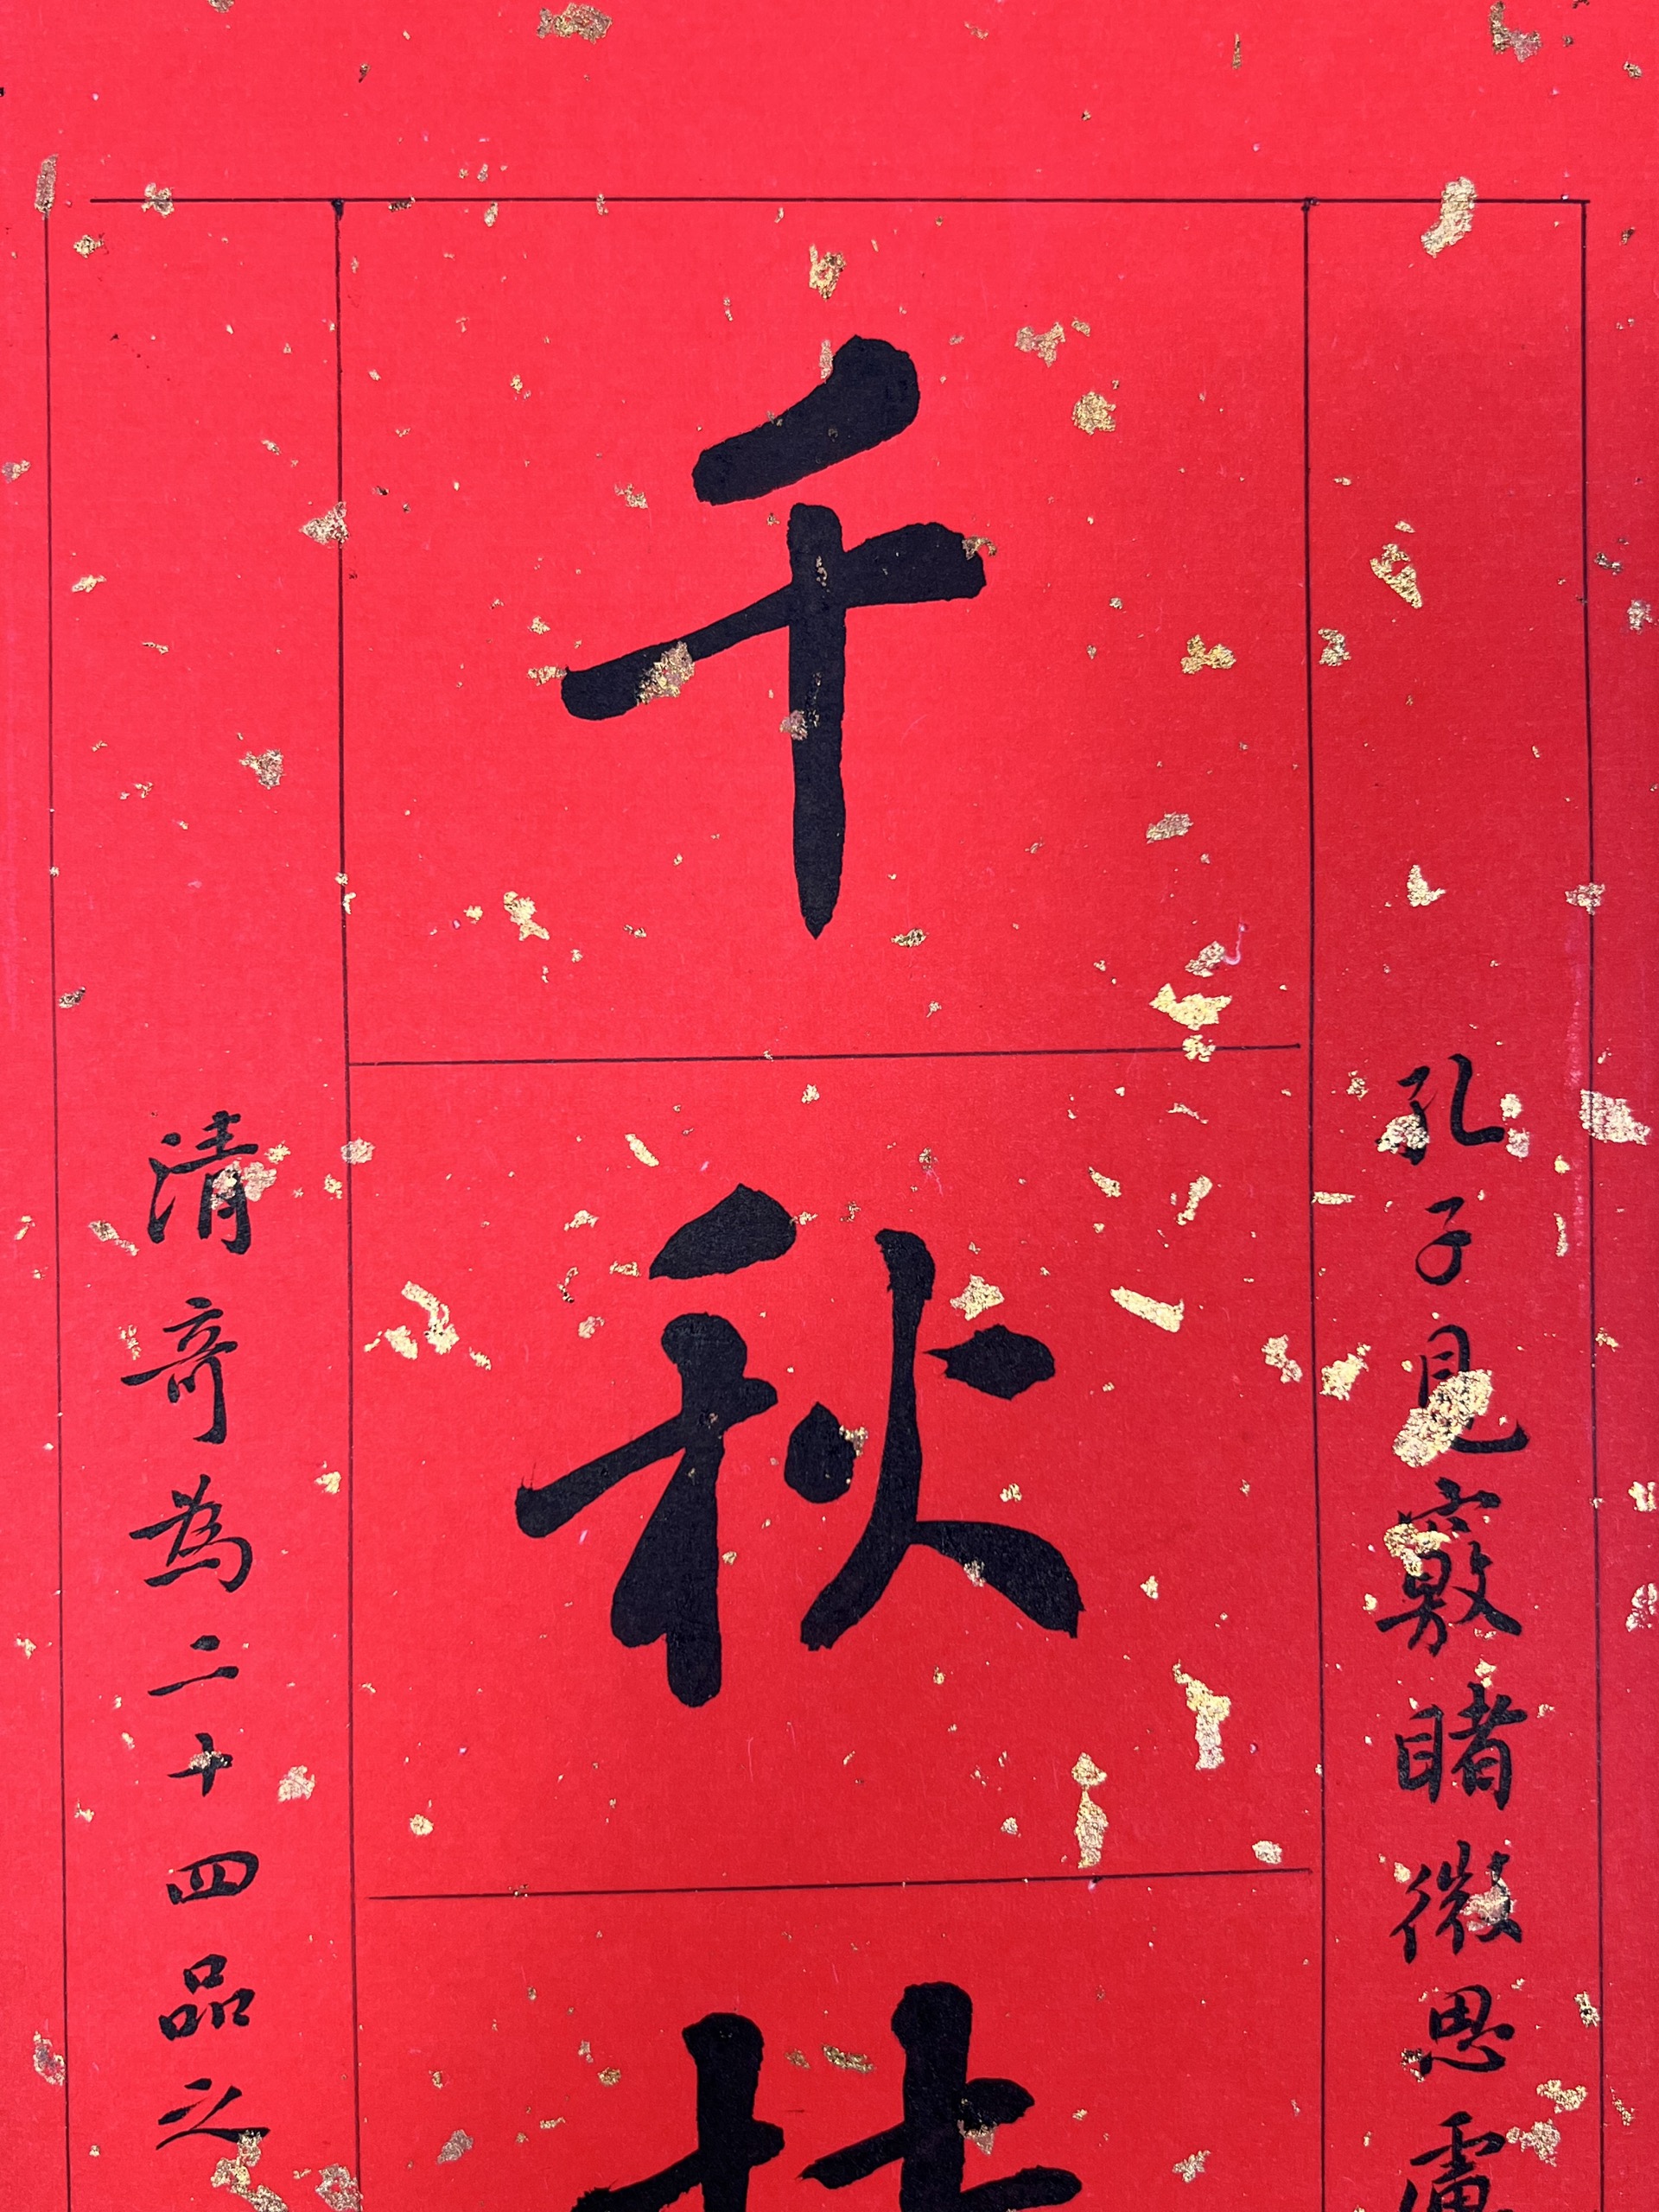 孔子見竅睹微思慮
千秋
清竒為二十四品之